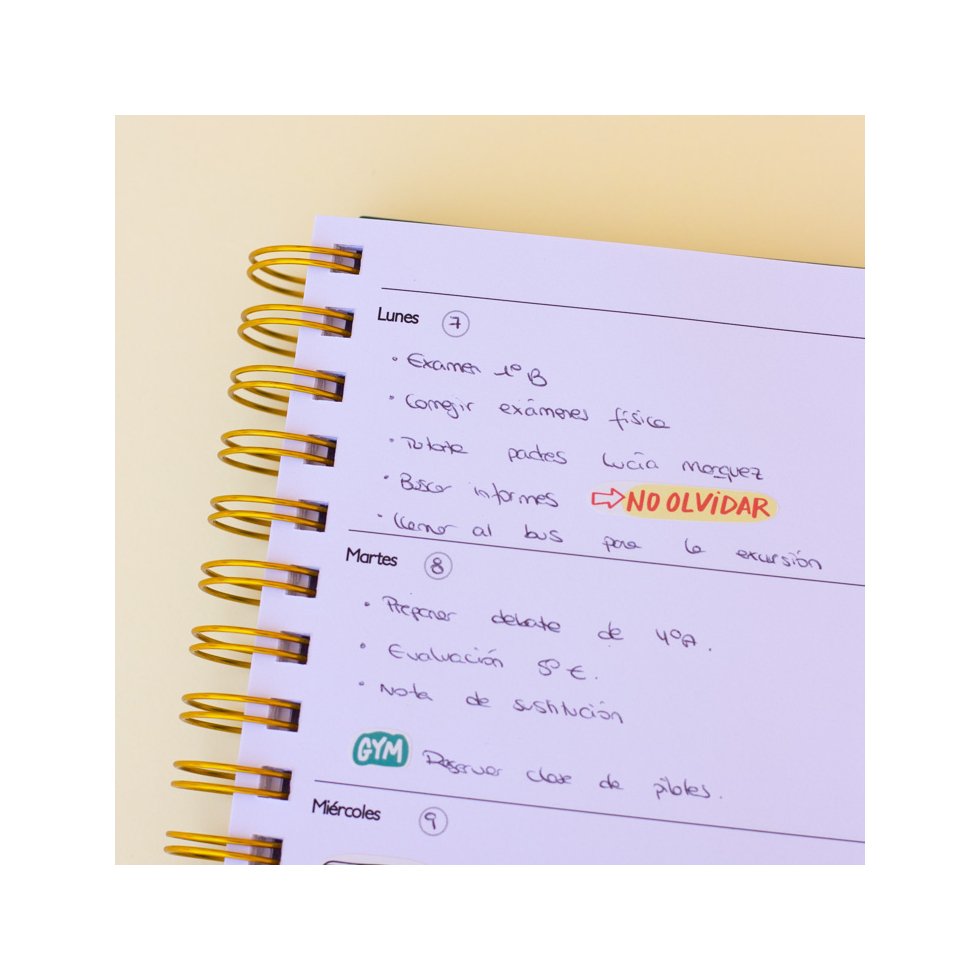 Lunes 7
· Examen 1º B
· Corregir exámenes física
· Tutoría padres Lucía Marquez
· Buscar informes ⇨NO OLViDAR
· Llamar al bus para la excursión
Martes 8
· Preparar debate de 4ºA.
· Evaluación 5º E.
· Nota de sustitución
GYM Reservar clase de pilates.
Miércoles 9